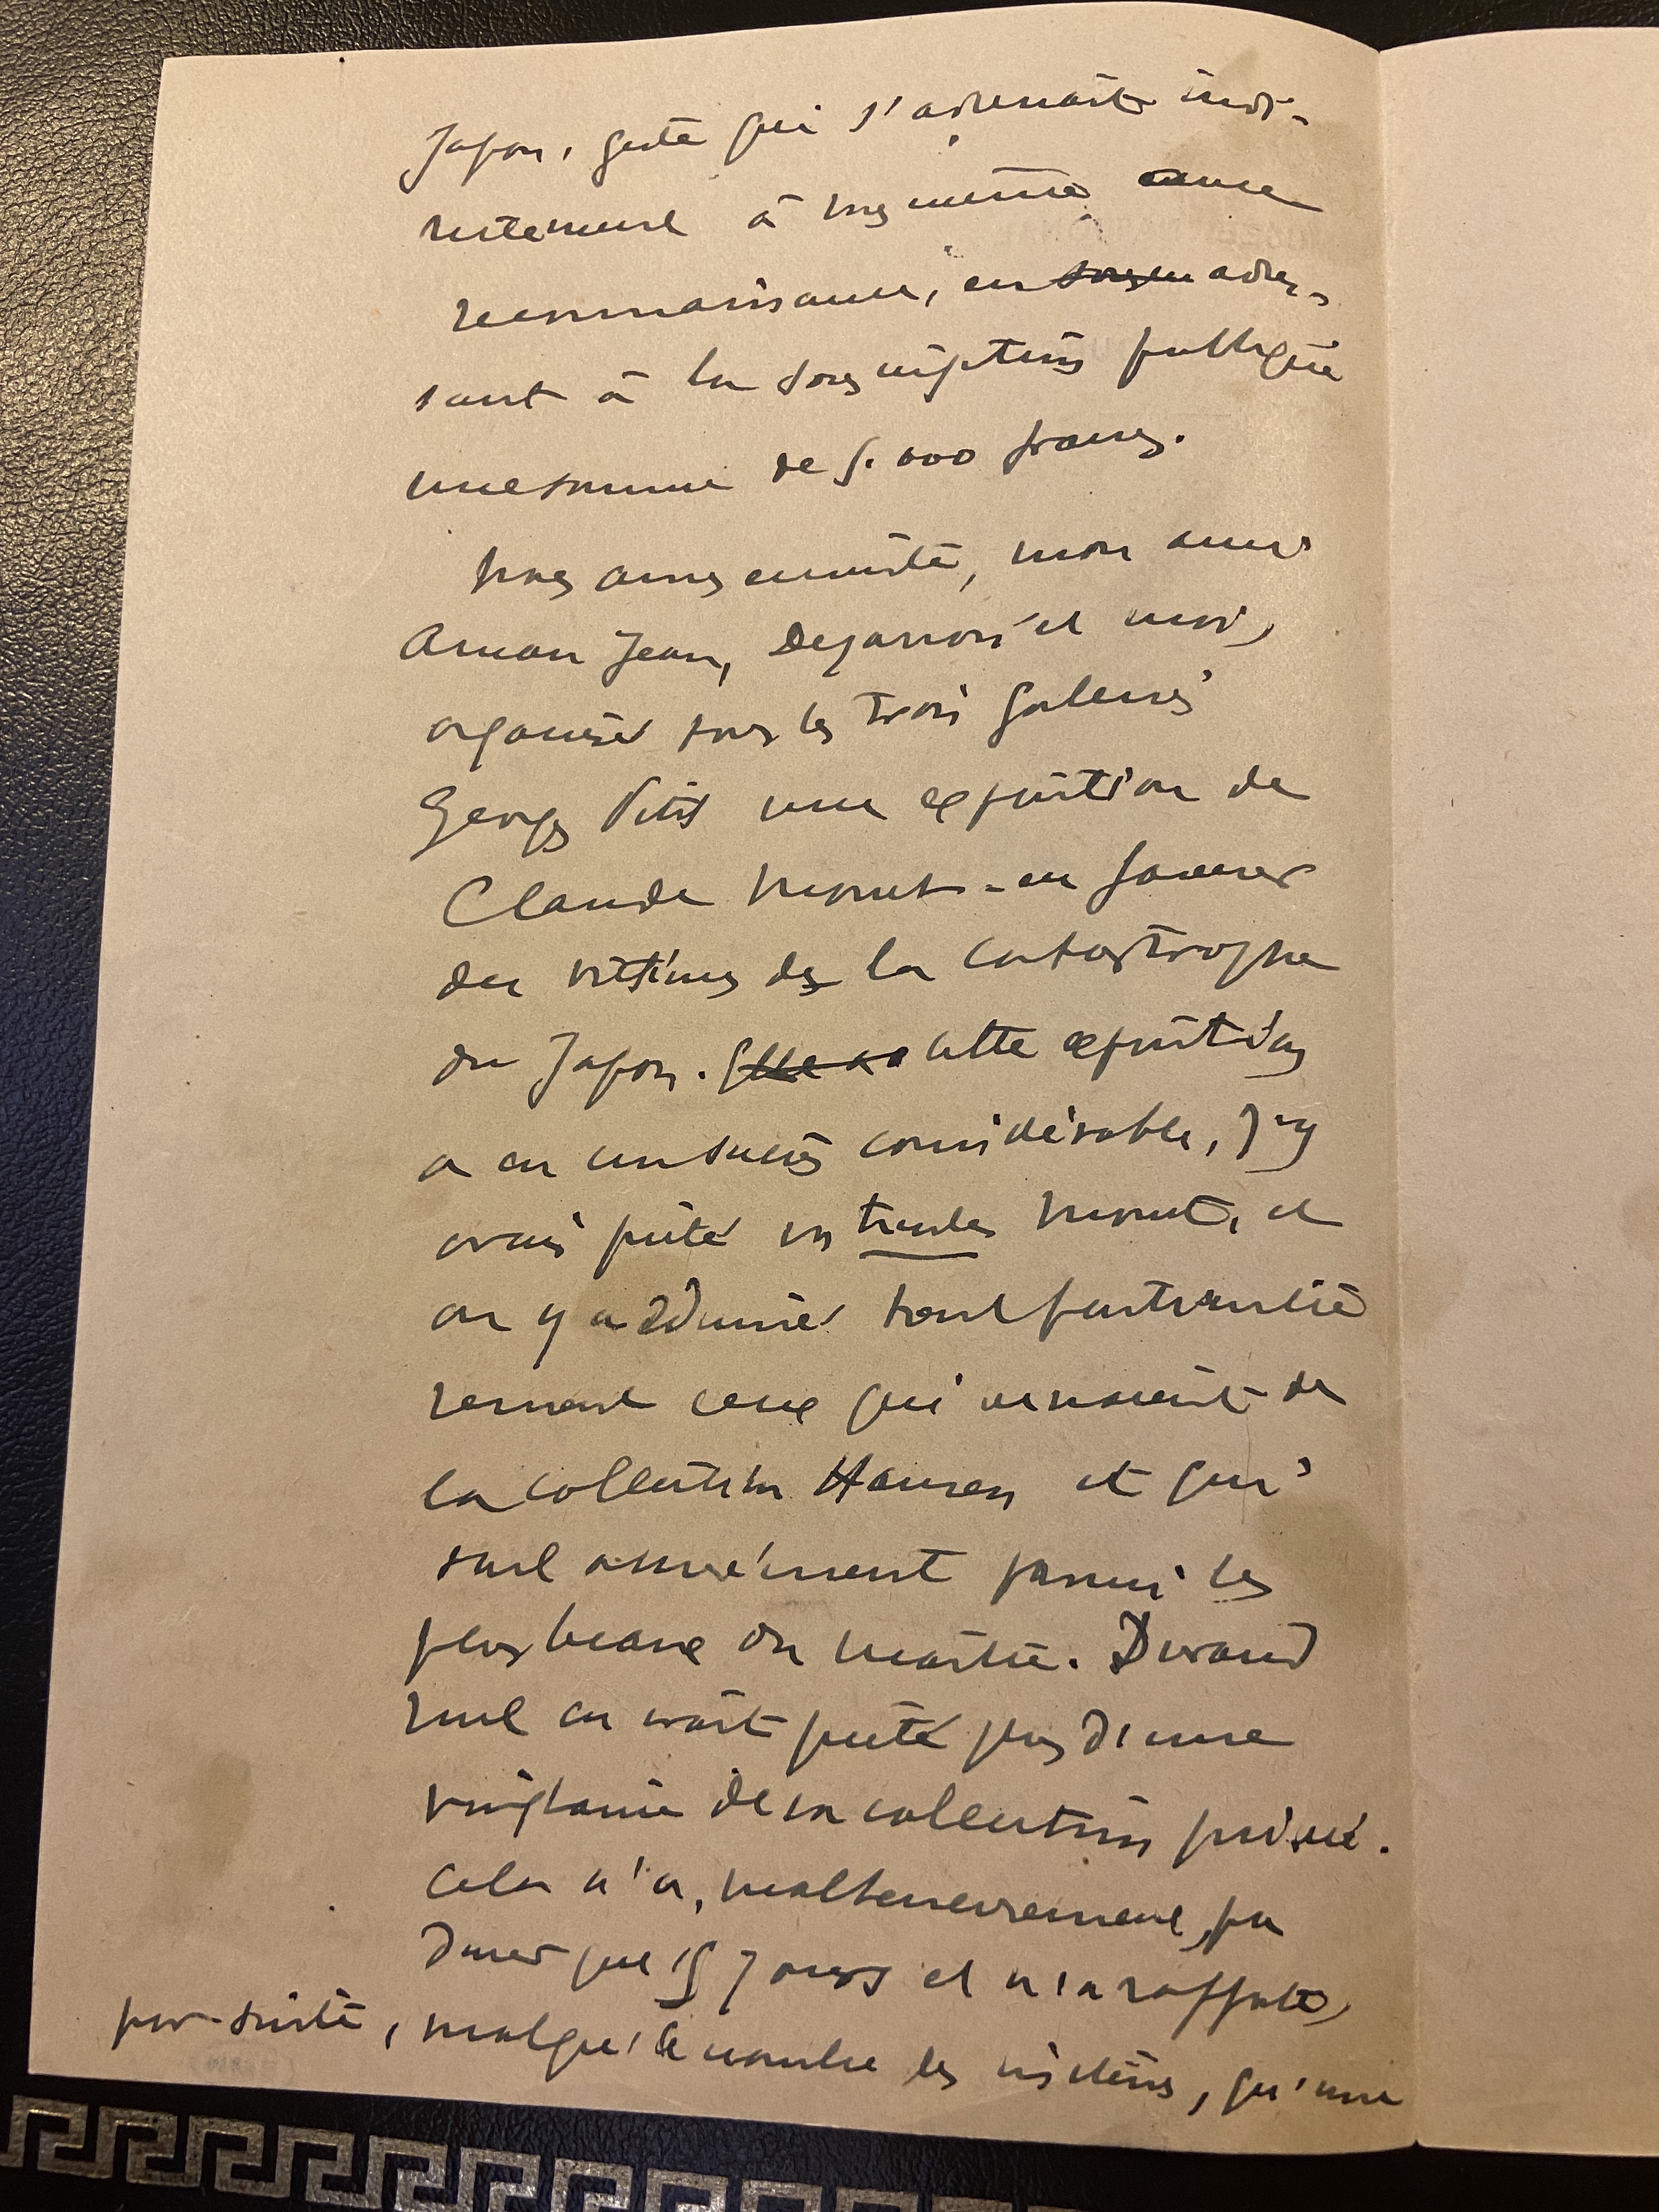 Japon, geste qui s'adressait indi-
rectement à vous même avec
reconnaissance, en adres-
sant à la souscription publique
une somme de 5.000 francs.
Nous avons ensuite, mon ami
Aman Jean, Dezarrois et moi,
organisé dans les trois galeries
Georges Petit une exposition de
Claude Monet - en faveur
des victimes de la catastrophe
du Japon. Elle a cette exposition
a eu un succès considérable, j'y
avais prêté vos trente Monet, et
on y a admiré tout particuliè
rement ceux qui venaient de
la collection Hansen et qui
sont assurément parmi les
plus beaux du maître. Durand
Ruel en avait prêté plus d'une
vingtaine de sa collection privée.
Cela n'a, malheureusement, pu
durer que 15 jours et n'a rapporté,
par suite, malgré le nombre des visiteurs, qu'une